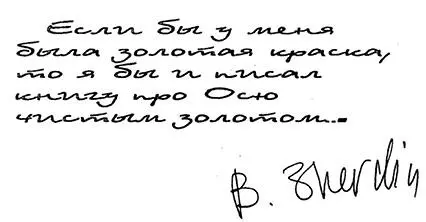 Если бы у меня
была золотая краска,
то я бы и писал
книгу про Осю
чистым золотом...
B. Zherdin